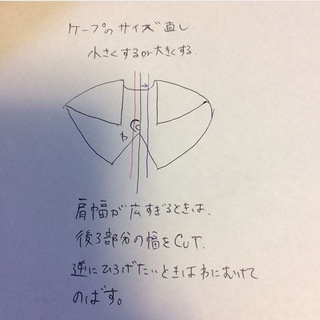 ケープのサイズ直し
小さくするor大きくする.
わ
肩幅が広すぎるときは、
後ろ部分の幅をCUT.
逆にひろげたいときはわにむけて
のばす。